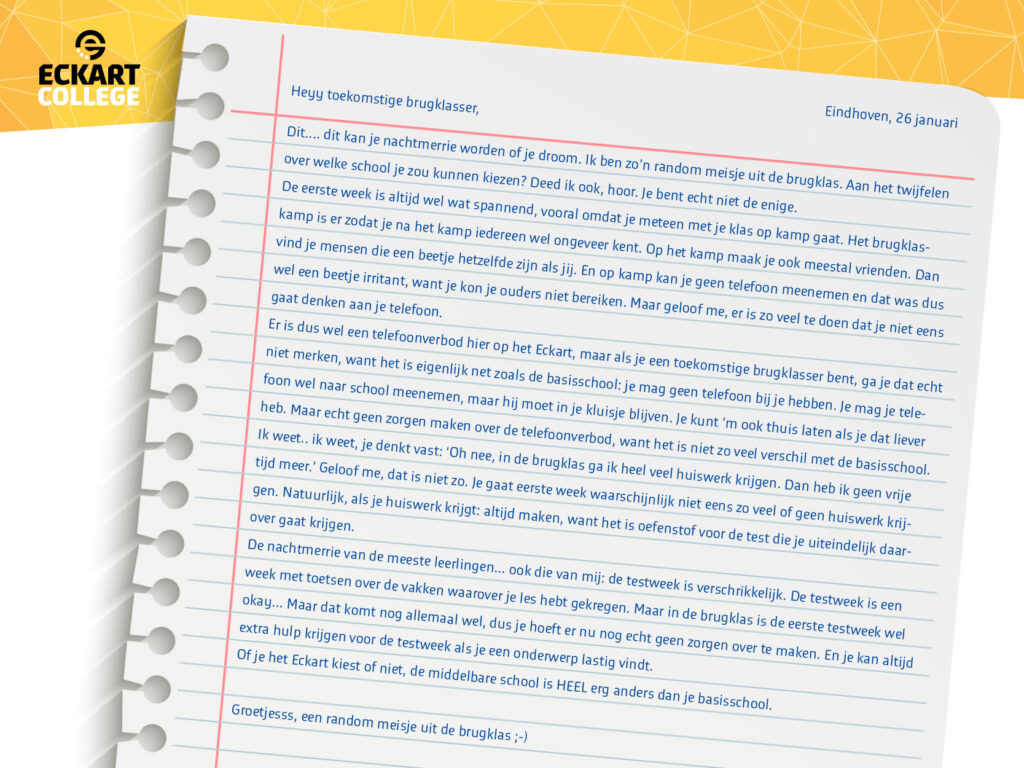 ECKART
COLLEGE
Heyy toekomstige brugklasser,
Eindhoven, 26 januari
Dit.... dit kan je nachtmerrie worden of je droom. Ik ben zo’n random meisje uit de brugklas. Aan het twijfelen
over welke school je zou kunnen kiezen? Deed ik ook, hoor. Je bent echt niet de enige.
De eerste week is altijd wel wat spannend, vooral omdat je meteen met je klas op kamp gaat. Het brugklas-
kamp is er zodat je na het kamp iedereen wel ongeveer kent. Op het kamp maak je ook meestal vrienden. Dan
vind je mensen die een beetje hetzelfde zijn als jij. En op kamp kan je geen telefoon meenemen en dat was dus
wel een beetje irritant, want je kon je ouders niet bereiken. Maar geloof me, er is zo veel te doen dat je niet eens
gaat denken aan je telefoon.
Er is dus wel een telefoonverbod hier op het Eckart, maar als je een toekomstige brugklasser bent, ga je dat echt
niet merken, want het is eigenlijk net zoals de basisschool: je mag geen telefoon bij je hebben. Je mag je tele-
foon wel naar school meenemen, maar hij moet in je kluisje blijven. Je kunt ‘m ook thuis laten als je dat liever
heb. Maar echt geen zorgen maken over de telefoonverbod, want het is niet zo veel verschil met de basisschool.
Ik weet.. ik weet, je denkt vast: ‘Oh nee, in de brugklas ga ik heel veel huiswerk krijgen. Dan heb ik geen vrije
tijd meer.’ Geloof me, dat is niet zo. Je gaat eerste week waarschijnlijk niet eens zo veel of geen huiswerk krij-
gen. Natuurlijk, als je huiswerk krijgt: altijd maken, want het is oefenstof voor de test die je uiteindelijk daar-
over gaat krijgen.
De nachtmerrie van de meeste leerlingen... ook die van mij: de testweek is verschrikkelijk. De testweek is een
week met toetsen over de vakken waarover je les hebt gekregen. Maar in de brugklas is de eerste testweek wel
okay... Maar dat komt nog allemaal wel, dus je hoeft er nu nog echt geen zorgen over te maken. En je kan altijd
extra hulp krijgen voor de testweek als je een onderwerp lastig vindt.
Of je het Eckart kiest of niet, de middelbare school is HEEL erg anders dan je basisschool.
Groetjesss, een random meisje uit de brugklas ;-)